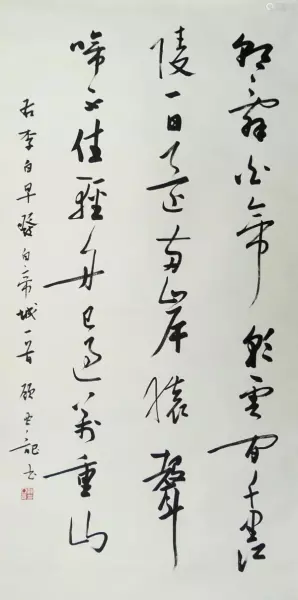 朝辞白帝彩云间千里江
陵一日还两岸猿声
啼不住轻舟已过万重山
右李白早发白帝城一首 顾